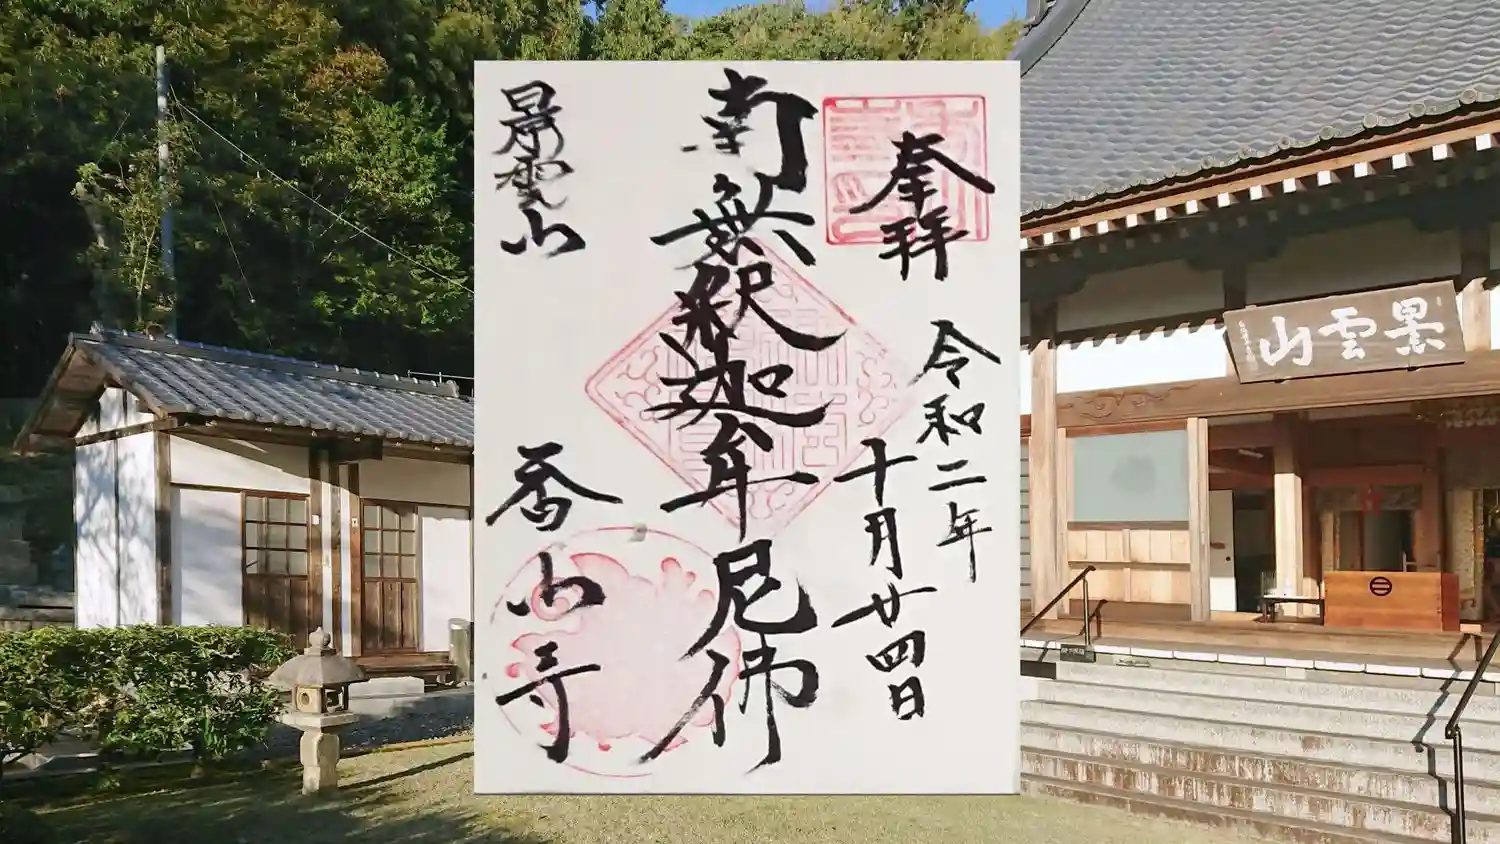 奉拝
令和二年
十月廿四日
南無釈迦牟尼佛
景雲山
香山寺
景雲山